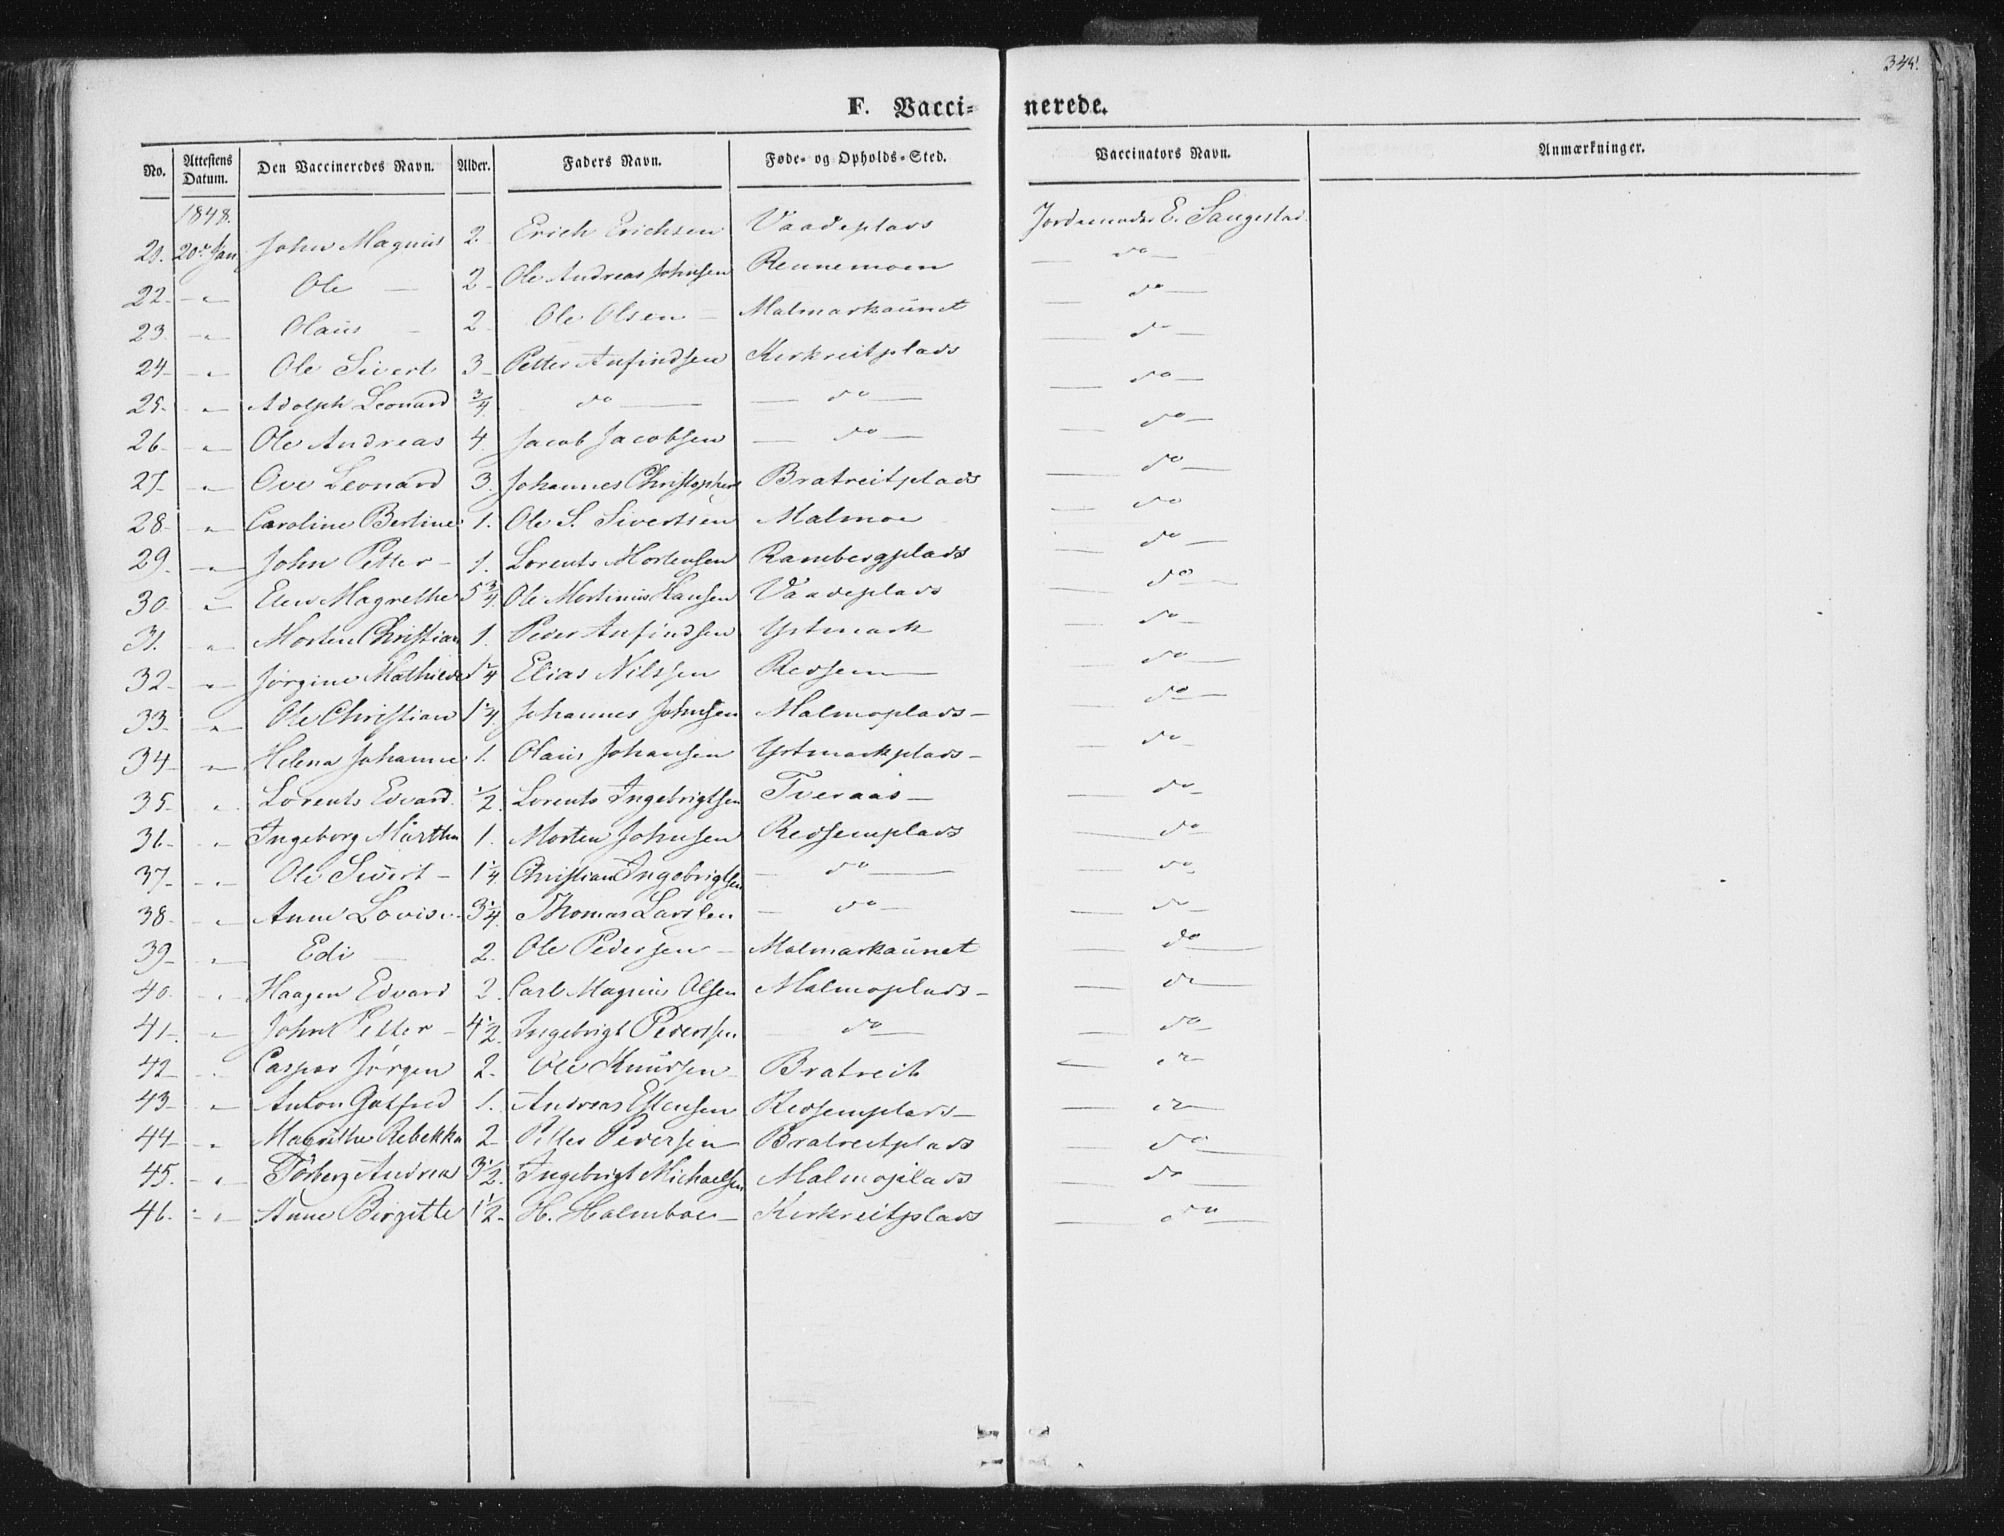 345.
F. Vaccinerede.
No. | Attestens Datum. | Den Vaccineredes Navn. | Alder. | Faders Navn. | Føde- og Opholds-Sted. | Vaccinators Navn. | Anmærkninger.
1848.
21. 20de Jan John Magnus 2. Erich Erichsen Vaadeplads Jordemoder E. Saugestad.
22 " Ole — 2 Ole Andreas Johnsen Rennemoen do
23. " Olaus — 2 Ole Olsen — Malmarkaunet do
24 " Ole Sivert 3 Petter Anfindsen Kirkreitplads do
25. " Adolph Leonard 3/4. do do do
26. " Ole Andreas 4. Jacob Jacobsen do do
27. " Ove Leonard 3. Johannes Christophers Bratreitplads do
28. " Caroline Bertine 1. Ole S. Sivertsen Malmoe do
29. " John Petter 1. Lorents Mortensen Rambergplads do
30. " Elen Magrethe 5 3/4. Ole Mortinus Hansen Vaadeplads do
31. " Morten Christian 1. Peder Anfindsen Ystmark do
32 " Jørgine Mathilde 1 1/4 Elias Nilssen Redsem do
33 " Ole Christian 1 1/4. Johannes Johnsen Malmoplads do
34 " Helena Johanne 1. Olaus Johansen Ystmarkplads do
35 " Lorents Edvard 1/2. Lorents Ingebrigtsen Tveraas do
36. " Ingeborg Martha 1. Morten Johnsen Redsemplads do
37 " Ole Sivert 1 1/4. Christian Ingebrigtsen do do
38. " Anne Lovise 3 1/4. Thomas Larssen do do
39 " Edi — 2. Ole Pedersen — Malmarkaunet do
40. " Haagen Edvard 2. Carl Magnus Olsen Malmoplads do
41. " John Petter 4 1/2. Ingebrigt Pederssen do do
42 " Casper Jørgen 2. Ole Knudsen Bratreit do
43 " Anton Gotfred 1. Andreas Estensen Redsemplads do
44 " Magrithe Rebekka 2 Petter Pedersen Bratreitplads do
45. " Torberg Andrea 3 1/2. Ingebrigt Michaelsen Malmoplads do
46. " Anne Birgitte 1 1/2. H. Holmboe Kirkreitplads do